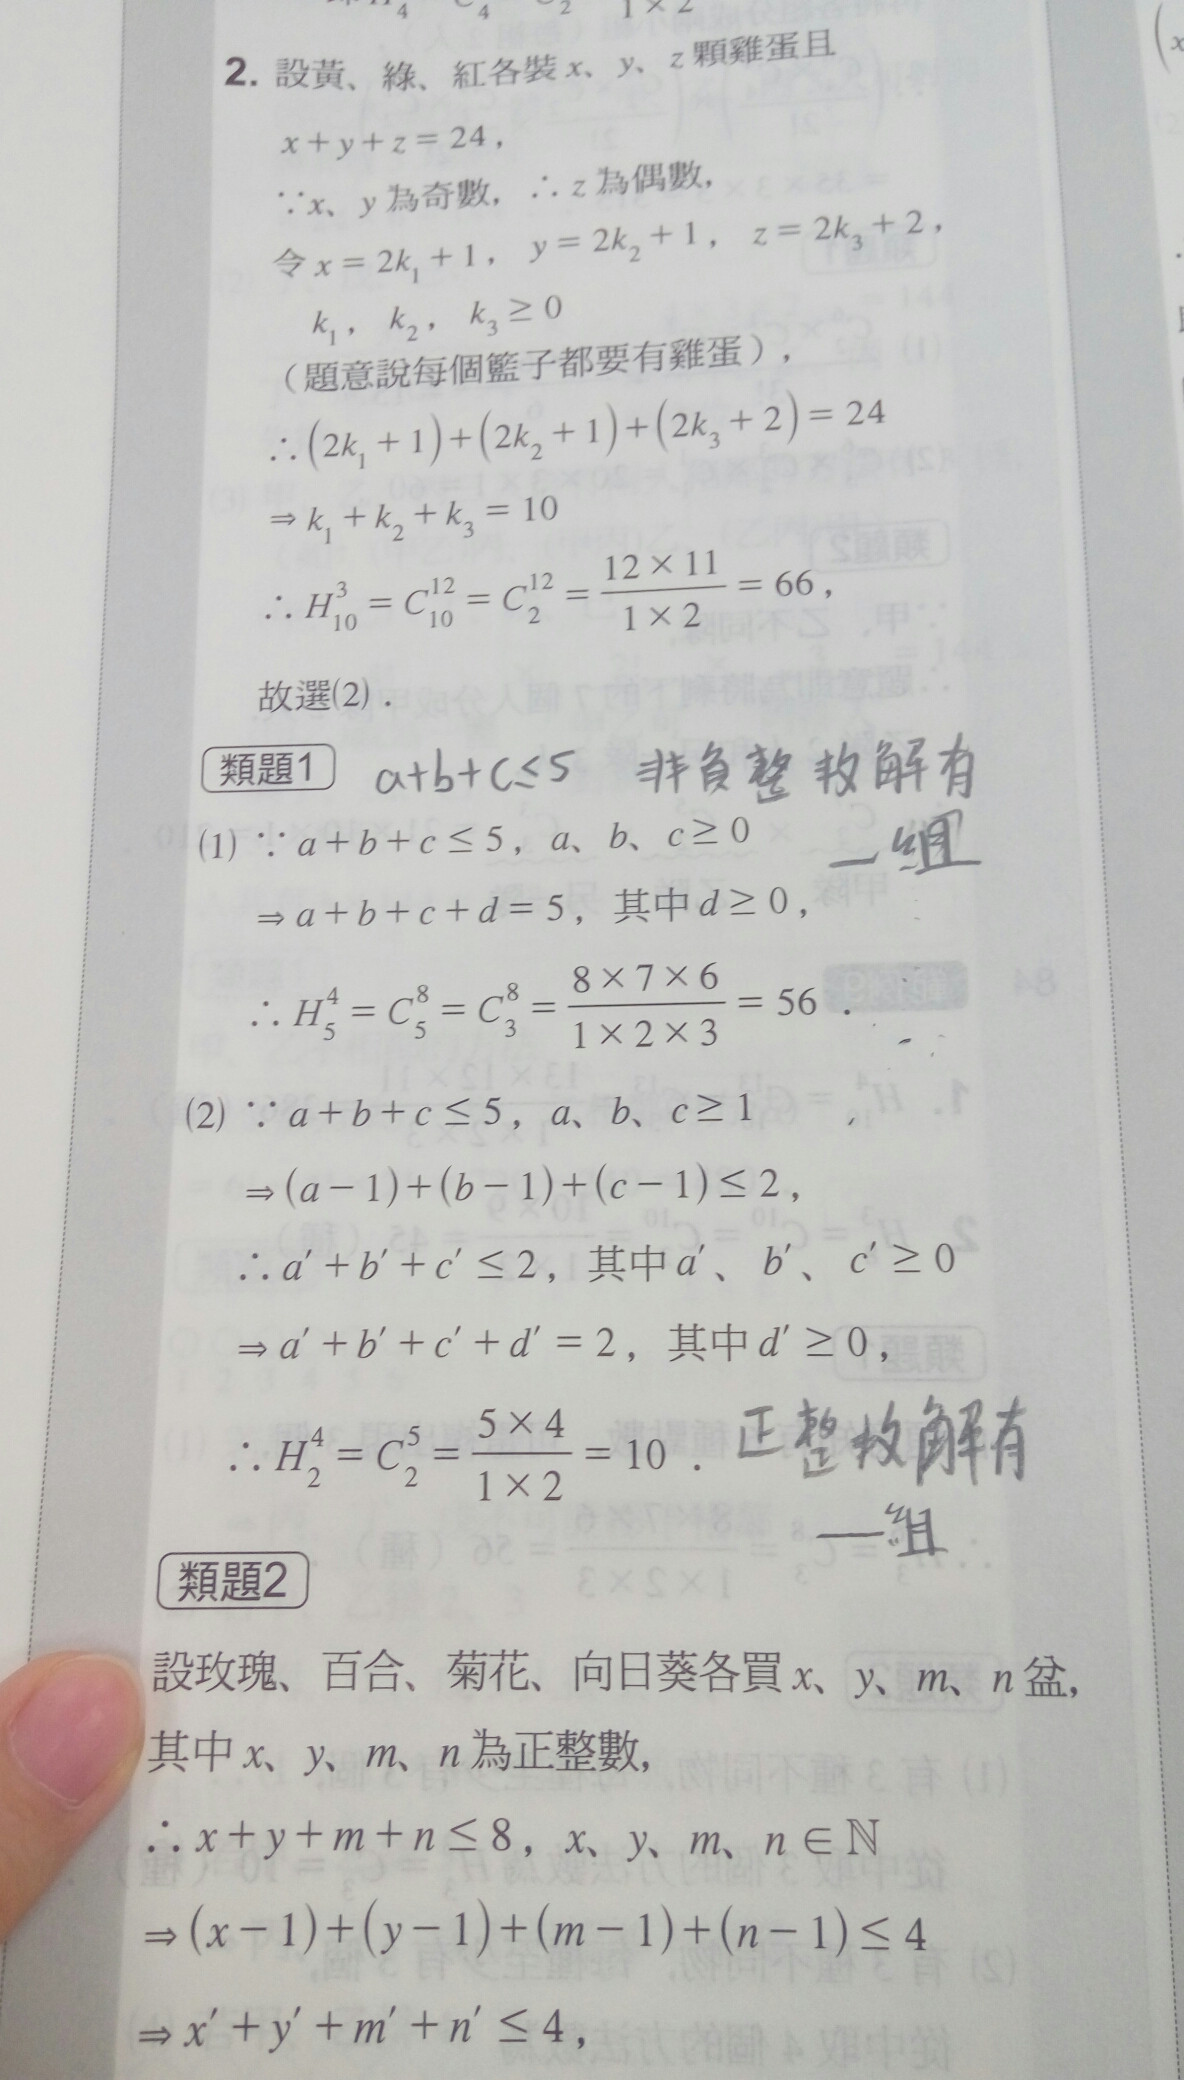 2. 設黃、綠、紅各裝 x、y、z 顆雞蛋且
x + y + z = 24，
∵x、y 為奇數，∴z 為偶數，
令 x = 2k₁ + 1，y = 2k₂ + 1，z = 2k₃ + 2，
k₁，k₂，k₃ ≥ 0
（題意說每個籃子都要有雞蛋），
∴(2k₁ + 1) + (2k₂ + 1) + (2k₃ + 2) = 24
⇒ k₁ + k₂ + k₃ = 10
∴H³₁₀ = C¹²₁₀ = C¹²₂ = (12 × 11)/(1 × 2) = 66，
故選(2)．
類題1 a+b+c≤5 非負整數解有
(1) ∵a + b + c ≤ 5，a、b、c ≥ 0 一組
⇒ a + b + c + d = 5，其中 d ≥ 0，
∴H⁴₅ = C⁸₅ = C⁸₃ = (8 × 7 × 6)/(1 × 2 × 3) = 56．
(2) ∵a + b + c ≤ 5，a、b、c ≥ 1
⇒ (a − 1) + (b − 1) + (c − 1) ≤ 2，
∴a′ + b′ + c′ ≤ 2，其中 a′、b′、c′ ≥ 0
⇒ a′ + b′ + c′ + d′ = 2，其中 d′ ≥ 0，
∴H⁴₂ = C⁵₂ = (5 × 4)/(1 × 2) = 10． 正整數解有
一組
類題2
設玫瑰、百合、菊花、向日葵各買 x、y、m、n 盆，
其中 x、y、m、n 為正整數，
∴x + y + m + n ≤ 8，x、y、m、n ∈ ℕ
⇒ (x − 1) + (y − 1) + (m − 1) + (n − 1) ≤ 4
⇒ x′ + y′ + m′ + n′ ≤ 4，